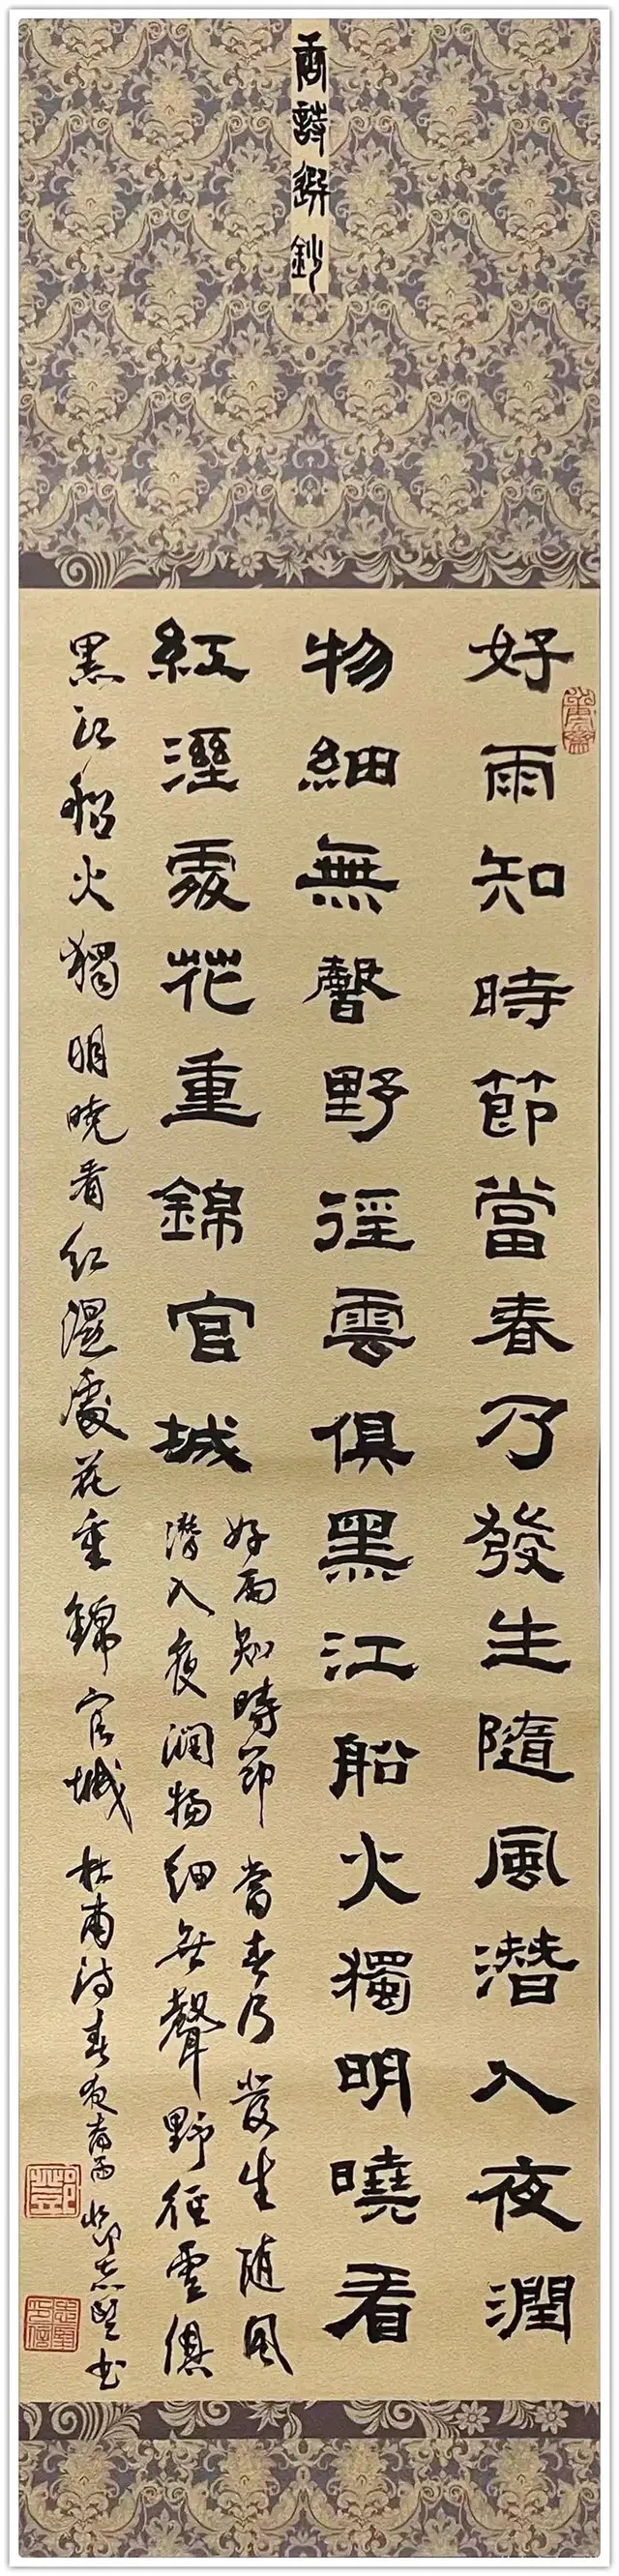 唐詩選鈔
好雨知時節當春乃發生隨風潛入夜潤
物細無聲野徑雲俱黑江船火獨明曉看
紅溼處花重錦官城
好雨知時節當春乃發生隨風
潛入夜潤物細無聲野徑雲俱
黑江船火獨明曉看紅濕處花重錦官城 杜甫詩春夜喜雨 書